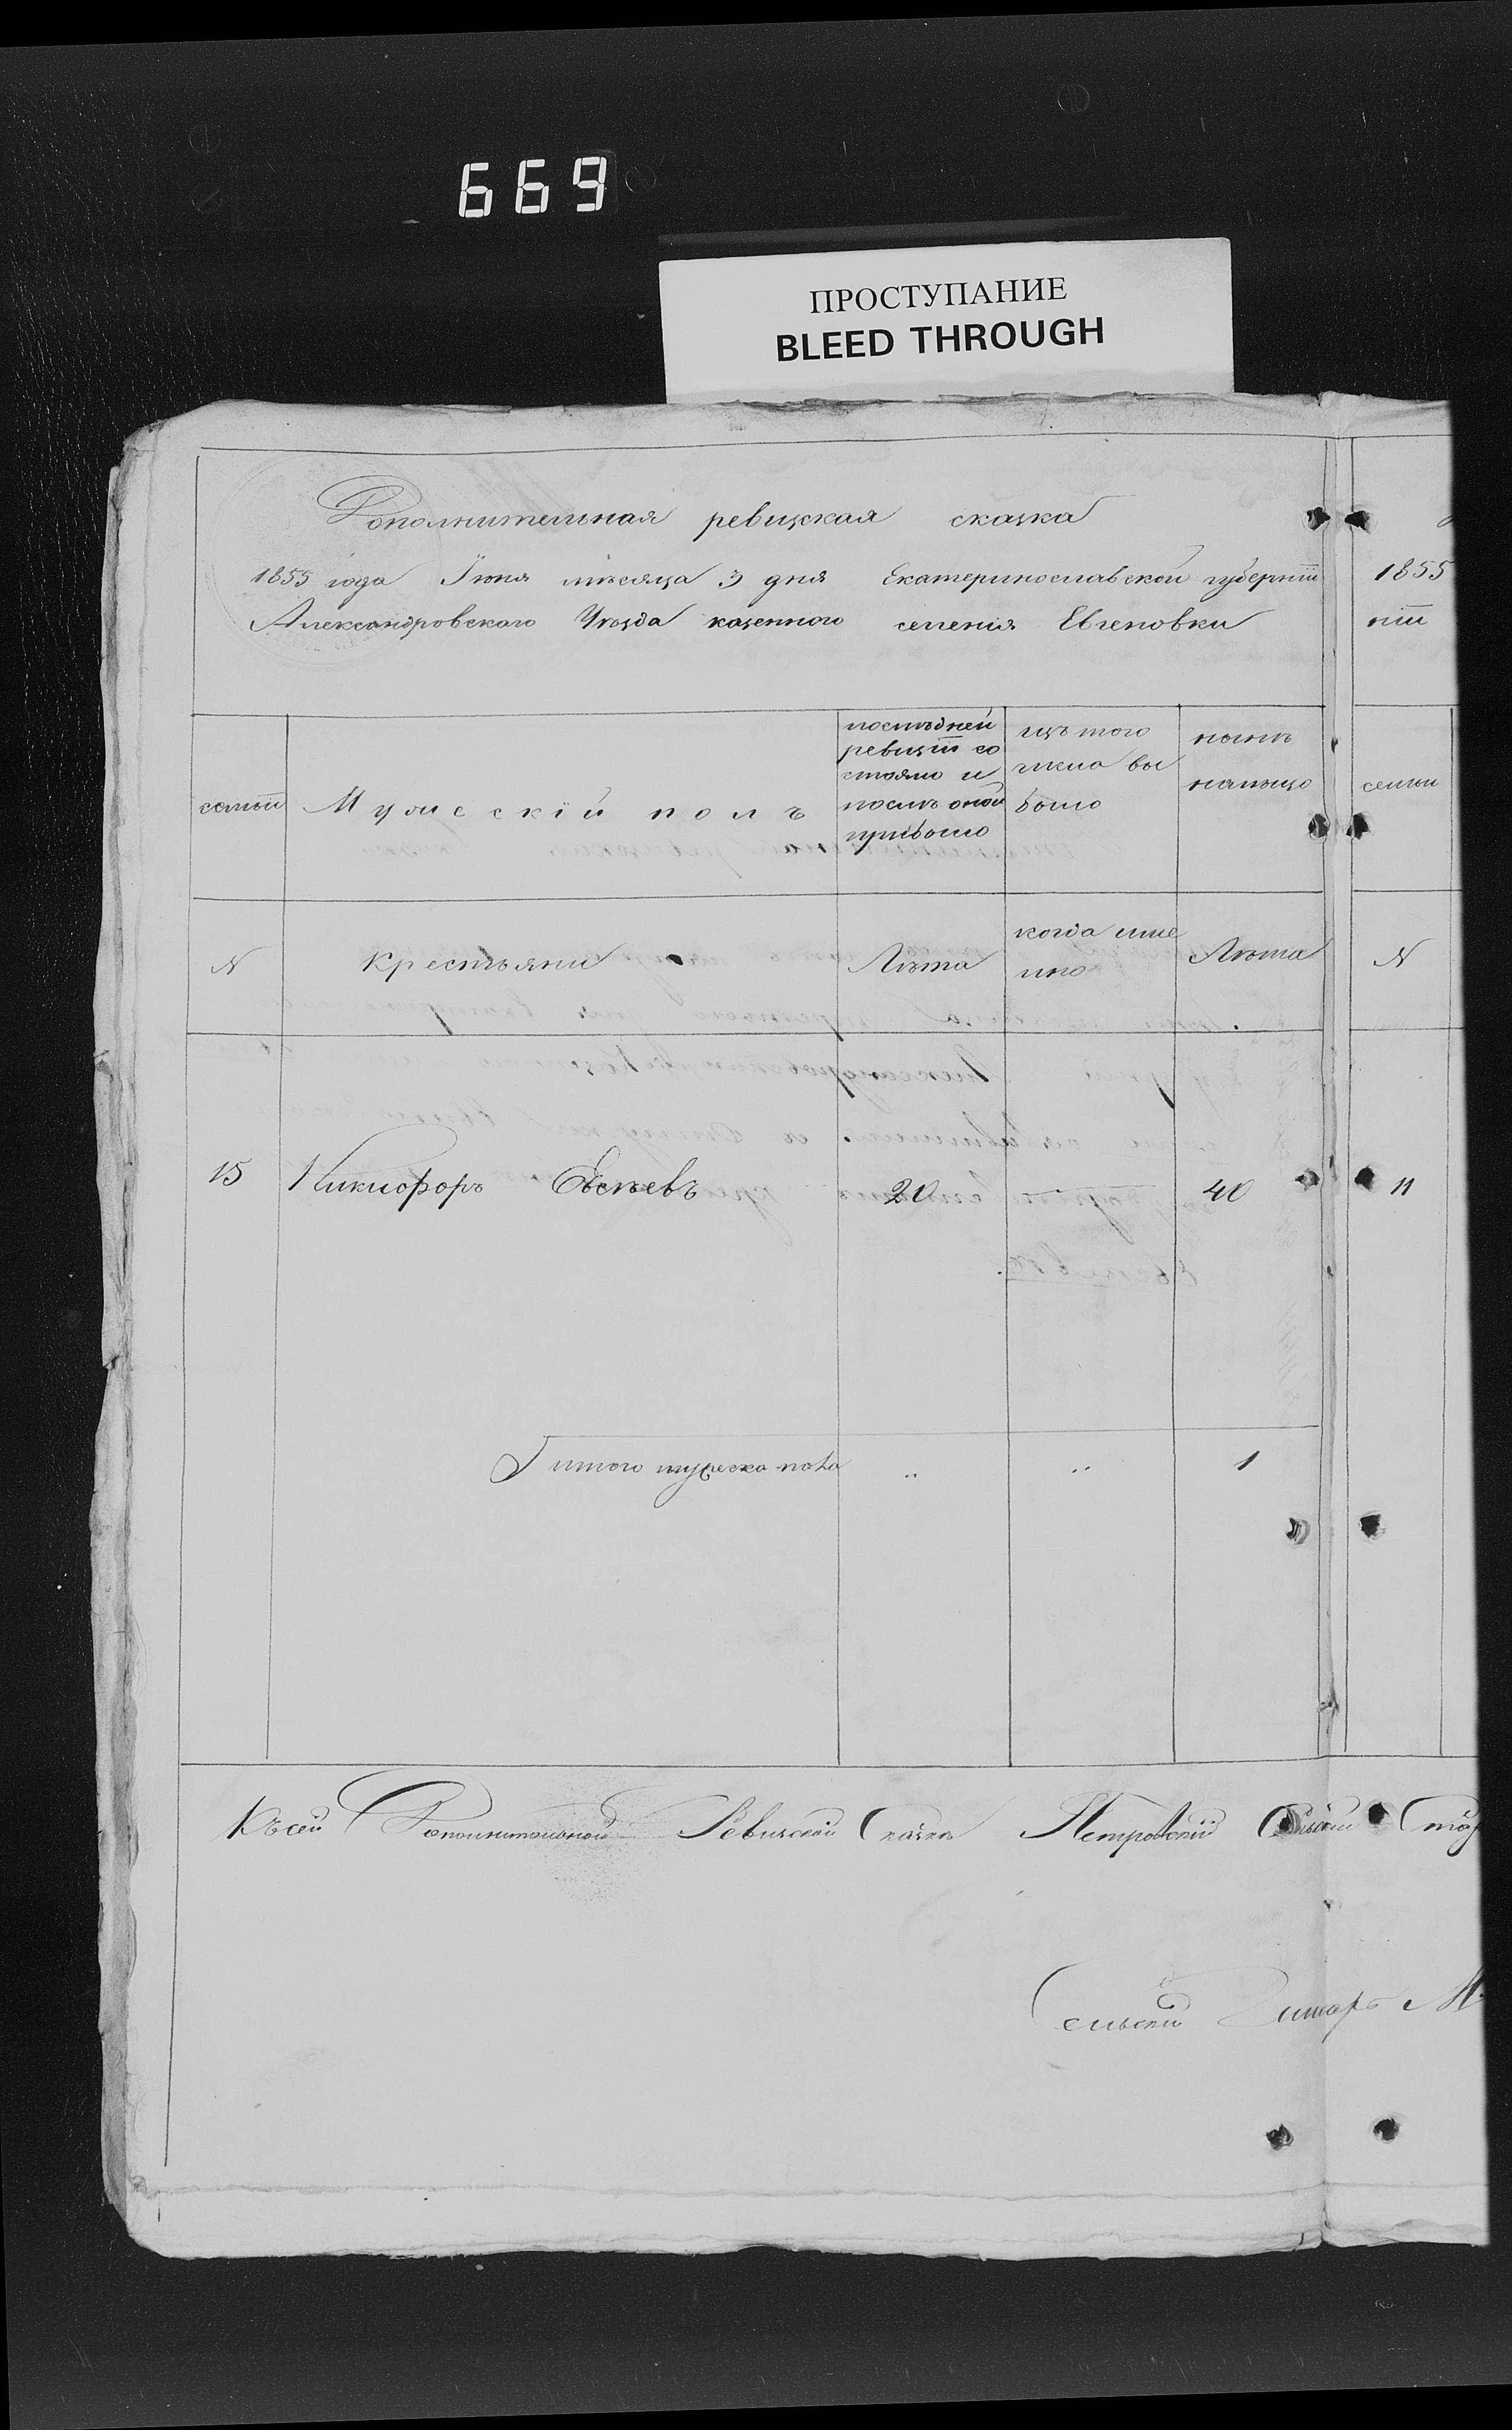 669
ПРОСТУПАНИЕ
BLEED THROUGH
Дополнительная ревизкая сказка
1855 года Їюня мѣсяца 3 дня Екатеринославской губернїи
Александровскаго Уѣзда казенного селенія Евгеновки
1855
нїи
семьи
Мужескїй полъ
последней
ревизїи со
стояло и
послѣ оной
прибыло
изъ того
числа вы
было
нынѣ
налицо
семьи
N
Крестьяни
Лѣта
когда имен
но
Лѣта
N
15 Никифоръ Евсѣевъ 20 — 40
11
Їитого мужеска пола „ „ 1
Къ сей Дополнительной Ревизской Сказкѣ Петровскїй Сельскїй Стар
Сельскїй Писарь М